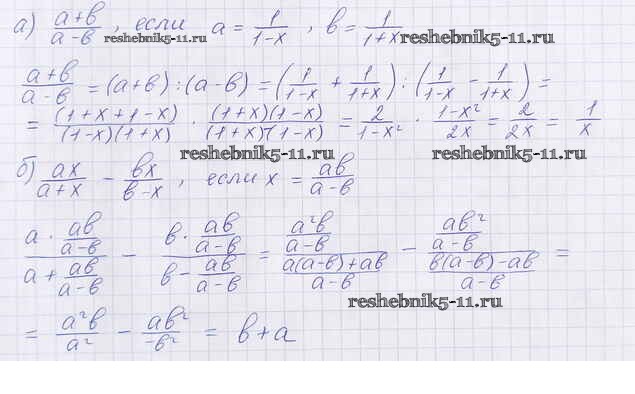 а) (a+b)/(a-b), если a = 1/(1-x), b = 1/(1+x) reshebnik5-11.ru reshebnik5-11.ru
(a+b)/(a-b) = (a+b):(a-b) = (1/(1-x) + 1/(1+x)) : (1/(1-x) - 1/(1+x)) =
= (1+x+1-x)/((1-x)(1+x)) · ((1+x)(1-x))/((1+x)-(1-x)) = 2/(1-x²) · (1-x²)/(2x) = 2/(2x) = 1/x
reshebnik5-11.ru reshebnik5-11.ru
б) ax/(a+x) - bx/(b-x), если x = ab/(a-b)
(a · ab/(a-b))/(a + ab/(a-b)) - (b · ab/(a-b))/(b - ab/(a-b)) = (a²b/(a-b))/((a(a-b)+ab)/(a-b)) - (ab²/(a-b))/((b(a-b)-ab)/(a-b)) =
reshebnik5-11.ru
= a²b/a² - ab²/-b² = b+a